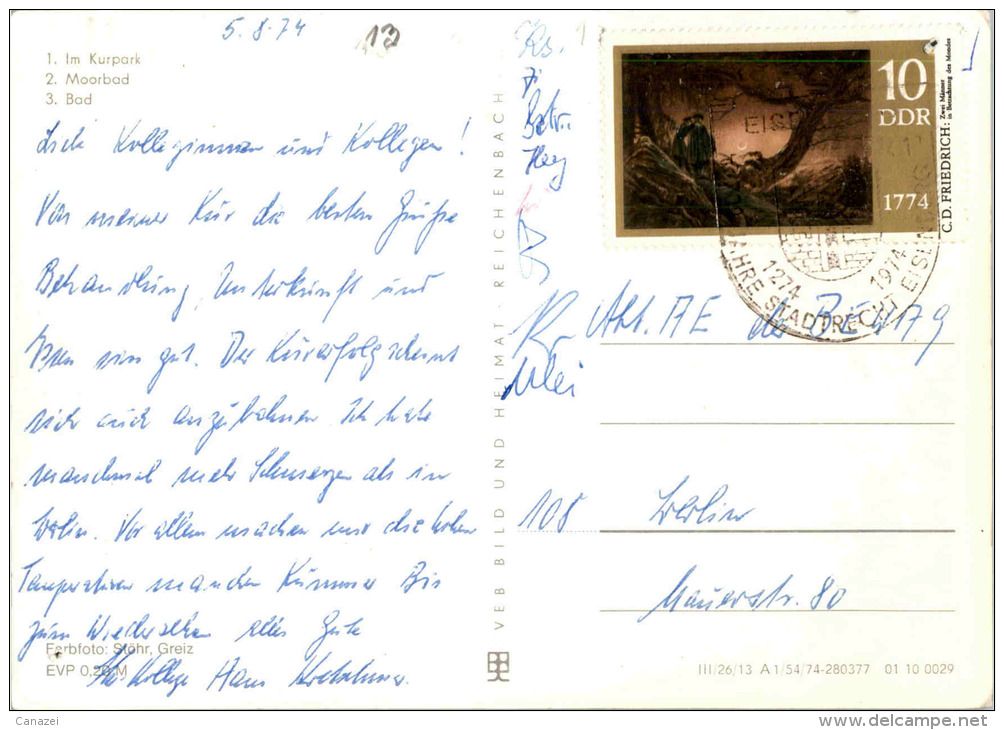 5.8.74
13
1. Im Kurpark
2. Moorbad
3. Bad
Liebe Kolleginnen und Kollegen!
Von meiner Kur die besten Grüße
Behandlung, Unterkunft und
Essen sind gut. Der Kurerfolg scheint
sich auch anzubahnen. Ich habe
manchmal mehr Schmerzen als in
Berlin. Vor allem machen mir die hohen
Temperaturen manchen Kummer. Bis
zum Wiedersehen alles Gute
Ihr Kollege Hans
Farbfoto: Stöhr, Greiz
EVP 0,20 M
VEB BILD UND HEIMAT REICHENBACH
10
DDR
1774
C. D. FRIEDRICH: Zwei Männer
in Betrachtung des Mondes
1274 1974
JAHRE STADTRECHT
Abt. AE der
108 Berlin
Mauerstr. 80
III/26/13 A 1/54/74-280377 01 10 0029
Canazei
www.delcampe.net